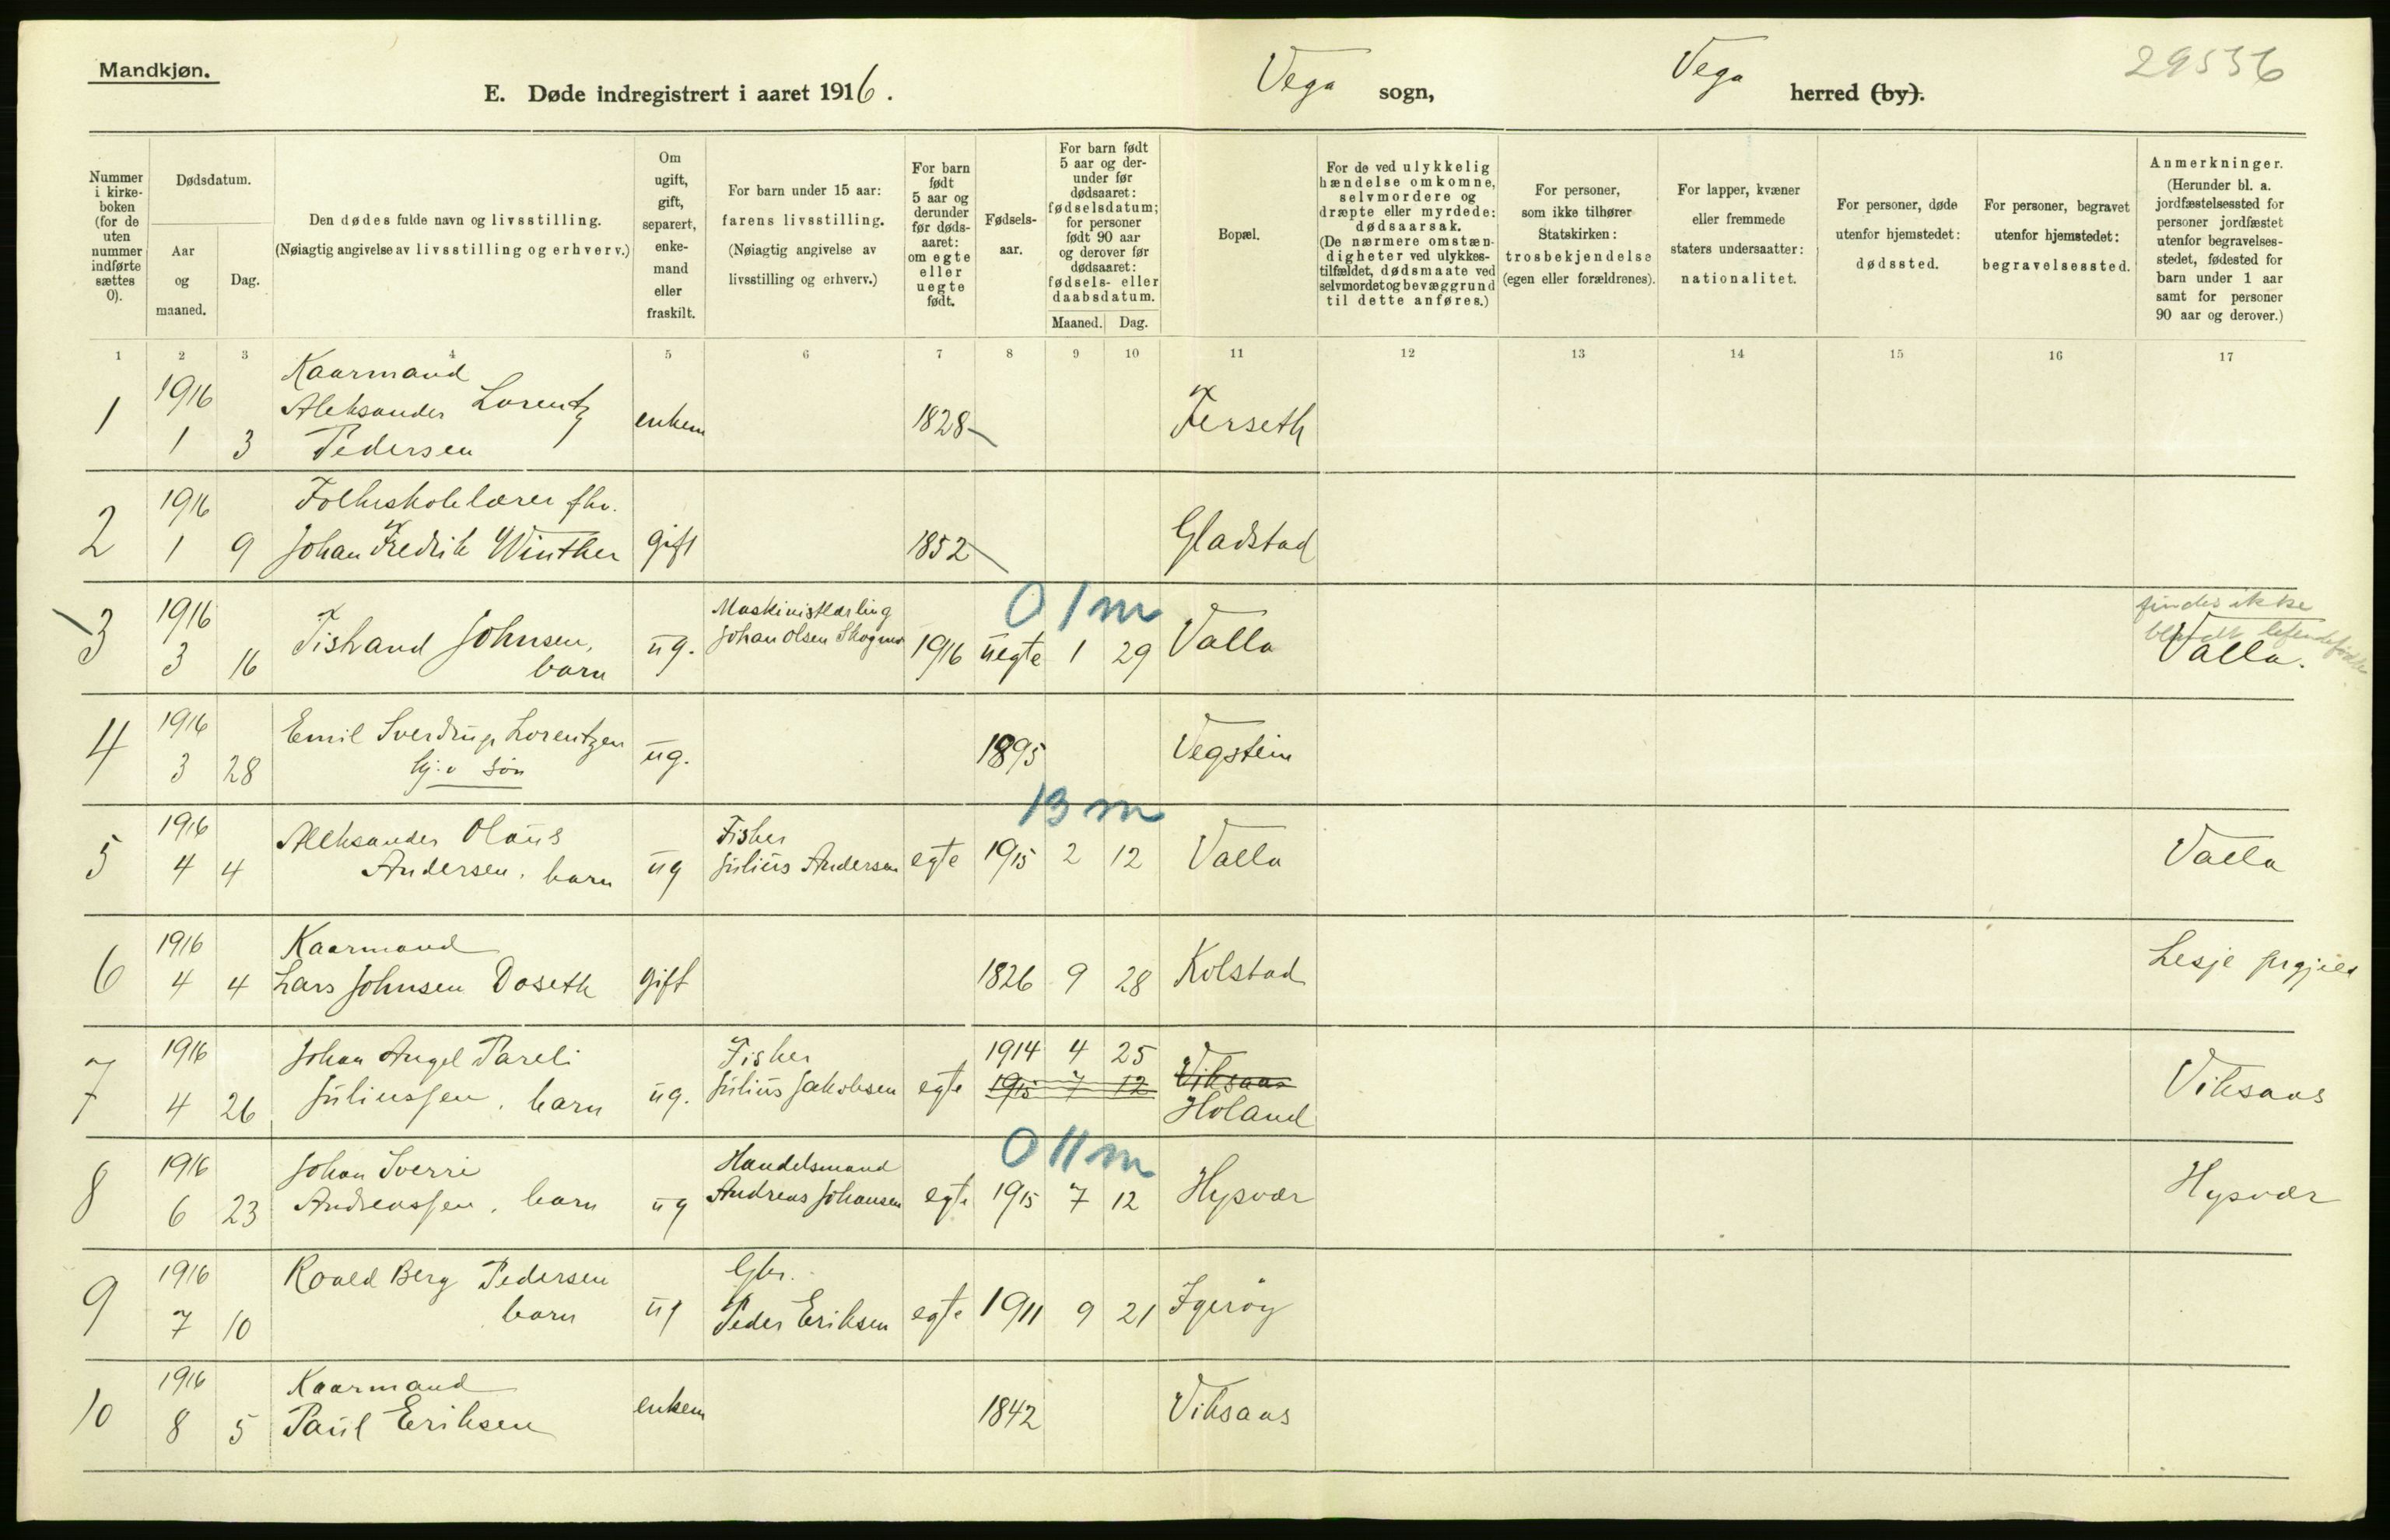 Mandkjøn.
E. Døde indregistrert i aaret 1916.
Vega sogn,
Vega herred (by).
29536
Nummer i kirke-boken (for de uten nummer indførte sættes 0).
Dødsdatum.
Aar og maaned.
Dag.
Den dødes fulde navn og livsstilling.
(Nøiagtig angivelse av livsstilling og erhverv.)
Om ugift, gift, separert, enke-mand eller fraskilt.
For barn under 15 aar: farens livsstilling.
(Nøiagtig angivelse av livsstilling og erhverv.)
For barn født 5 aar og derunder før døds-aaret: om egte eller uegte født.
Fødsels-aar.
For barn født 5 aar og der-under før dødsaaret: fødselsdatum; for personer født 90 aar og derover før dødsaaret: fødsels- eller daabsdatum.
Maaned. Dag.
Bopæl.
For de ved ulykkelig hændelse omkomne, selvmordere og dræpte eller myrdede: dødsaarsak.
(De nærmere omstæn-digheter ved ulykkes-tilfældet, dødsmaate ved selvmordet og bevæggrund til dette anføres.)
For personer, som ikke tilhører Statskirken: trosbekjendelse (egen eller forældrenes).
For lapper, kvæner eller fremmede staters undersaatter: nationalitet.
For personer, døde utenfor hjemstedet: dødssted.
For personer, begravet utenfor hjemstedet: begravelsessted.
Anmerkninger.
(Herunder bl. a. jordfæstelsessted for personer jordfæstet utenfor begravelses-stedet, fødested for barn under 1 aar samt for personer 90 aar og derover.)
1 2 3 4 5 6 7 8 9 10 11 12 13 14 15 16 17
1 1916 1 3 Kaarmand Aleksander Lorentz Pedersen enkem 1828 Ferseth
2 1916 1 9 Folkeskolelærer fhv. Johan Fredrik Winther gift 1852 Gladstad
0 1 m
3 1916 3 16 Johnsen, barn ug. Johan Olsen 1916 uegte 1 29 Valla findes ikke Valla.
4 1916 3 28 Emil Sverdrup Lorentzen søn ug. 1895 Vegstein
13 m
5 1916 4 4 Aleksander Olaus Andersen, barn ug Fisker Julius Andersen egte 1915 2 12 Valla Valla
6 1916 4 4 Kaarmand Lars Johnsen Doseth gift 1826 9 28 Kolstad Lesje prgjeld
7 1916 4 26 Johan Angel Pareli Juliussen, barn ug. Fisker Julius Jakobsen egte 1914 4 25 1915 7 12 Viksaas Holand Viksaas
0 11 m
8 1916 6 23 Johan Sverri Andreassen, barn ug Handelsmand Andreas Johansen egte 1915 7 12 Hysvær Hysvær
9 1916 7 10 Roald Berg Pedersen barn ug Gbr. Peder Eriksen egte 1911 9 21 Igerøy
10 1916 8 5 Kaarmand Paul Eriksen enkem 1842 Viksaas